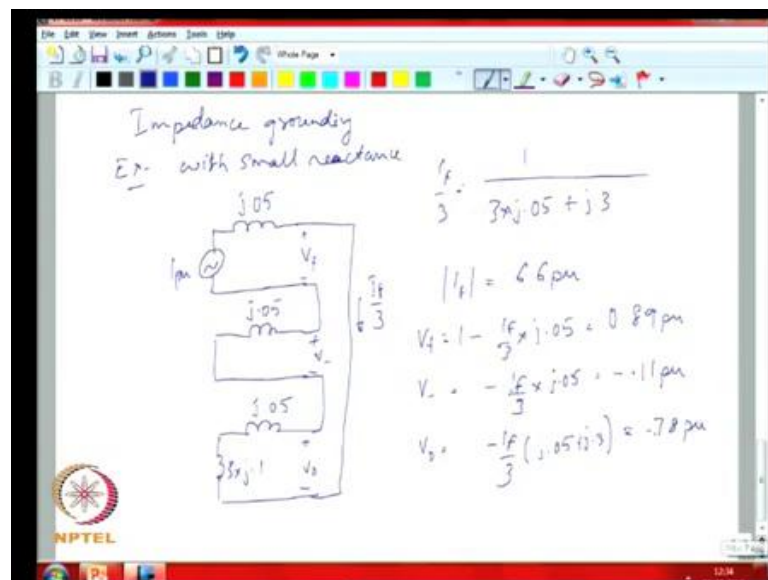 File Edit View Insert Actions Tools Help
Whole Page
B I
Impedance grounding
Ex- with small reactance
j.05
1pu
V+
j.05
V-
j.05
3xj.1
V0
If/3
If/3 = 1 / (3xj.05 + j.3)
|If| = 6.6pu
V+ = 1 - If/3 x j.05 = 0.89pu
V- = - If/3 x j.05 = -.11pu
V0 = - If/3 (j.05+j.3) = -.78pu
NPTEL
12:34